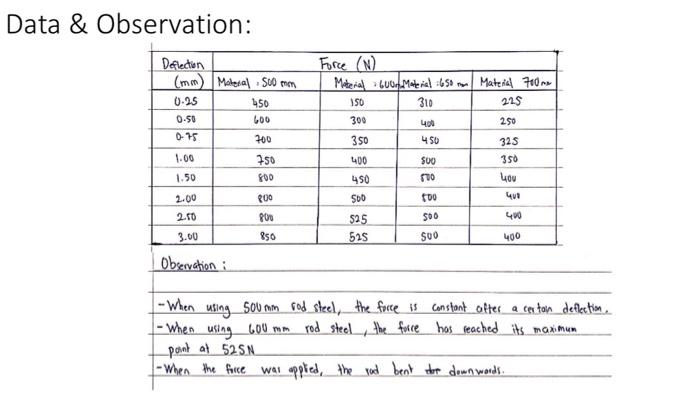 Data & Observation:
Deflection Force (N)
(mm) Material : 500 mm Material : 600m Material : 650 mm Material 700 mm
0.25 450 150 310 225
0.50 600 300 400 250
0.75 700 350 450 325
1.00 750 400 500 350
1.50 800 450 500 400
2.00 800 500 500 400
2.50 800 525 500 400
3.00 850 525 500 400
Observation :
- When using 500 mm rod steel, the force is constant after a certain deflection.
- When using 600 mm rod steel, the force has reached its maximum
point at 525N
- When the force was applied, the rod bent downwards.